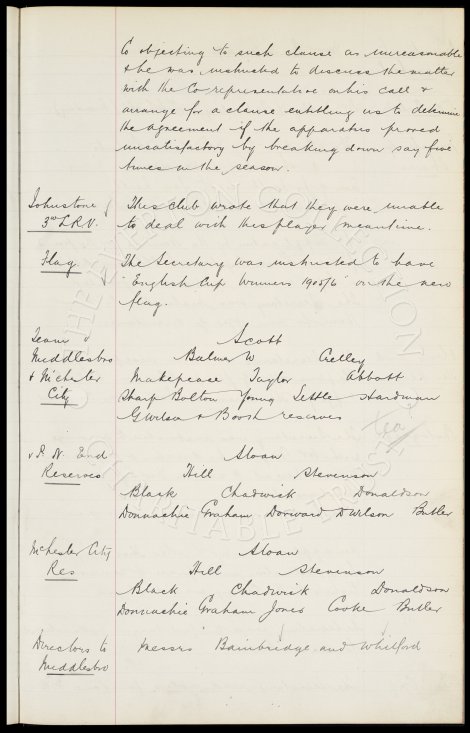 Co objecting to such clause as unreasonable
& he was instructed to discuss the matter
with the Co representative on his call &
arrange for a clause entitling us to determine
the agreement if the apparatus proved
unsatisfactory by breaking down say five
times in the season.
Johnstone
3rd L.R.V.
This club wrote that they were unable
to deal with this player meantime.
Flag
The Secretary was instructed to have
"English Cup Winners 1905/6" on the new
flag.
Team v
Middlesbro
& M'chester
City
Scott
Balmer W Crelley
Makepeace Taylor Abbott
Sharp Bolton Young Settle Hardman
G Wilson & Booth reserves
v P. N. End
Reserves
Sloan
Hill Stevenson
Black Chadwick Donaldson
Donnachie Graham Dorward D Wilson Butler
M'chester City
Res
Sloan
Hill Stevenson
Black Chadwick Donaldson
Donnachie Graham Jones Cooke Butler
Directors to
Middlesbro
Messrs Bainbridge and Whitford
THE EVERTON COLLECTION
CHARITABLE TRUST